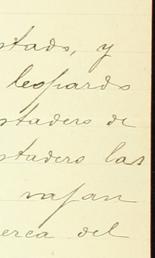 stado, y
leopardo
stadero de
stadero las
vafan
erca del